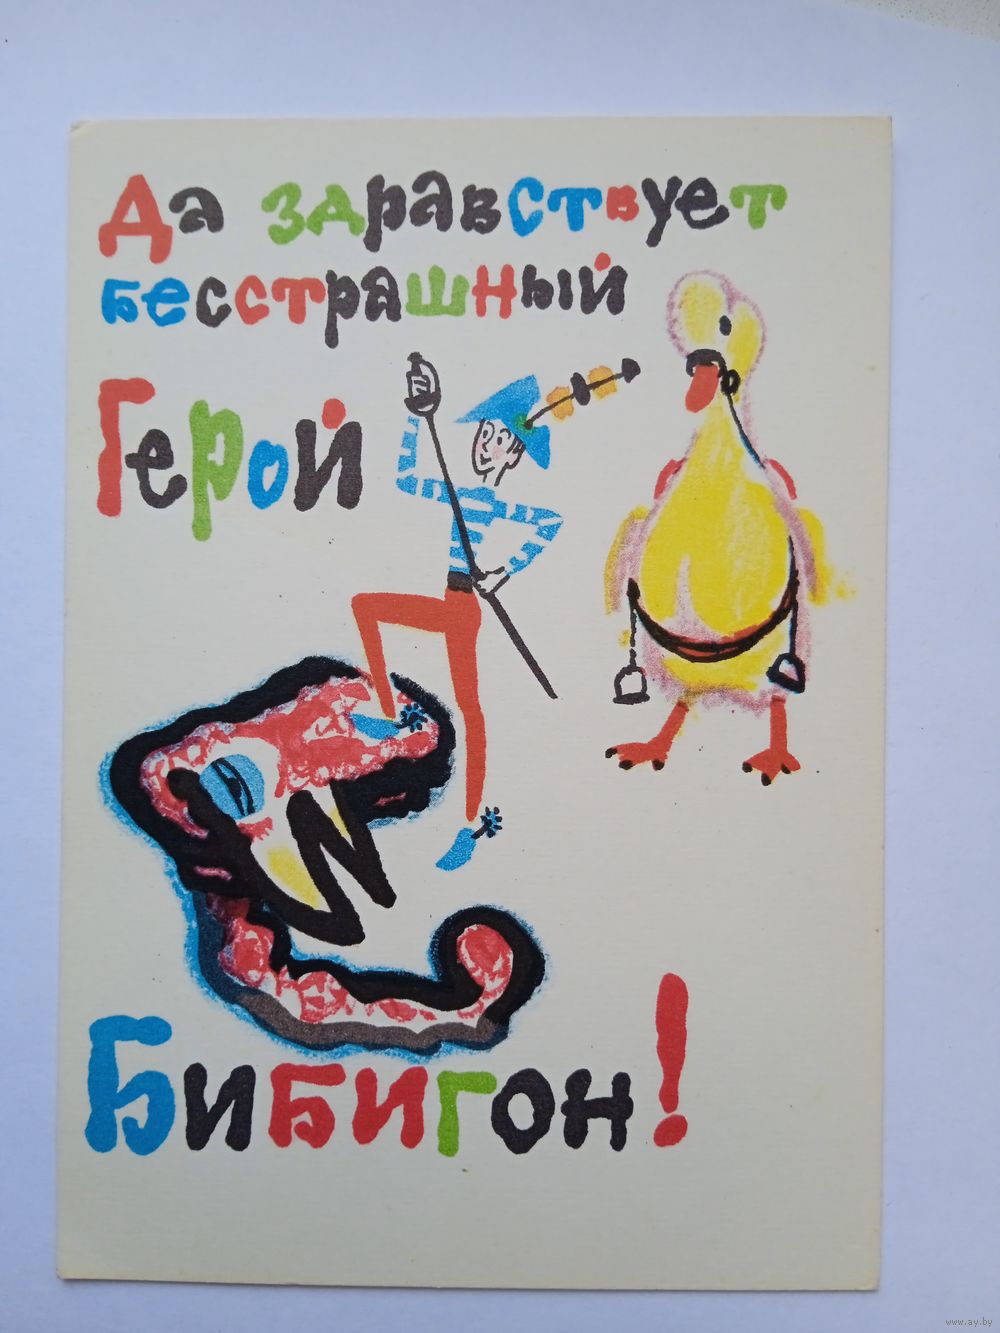 Да здравствует
бесстрашный
Герой
Бибигон!
www.ay.by